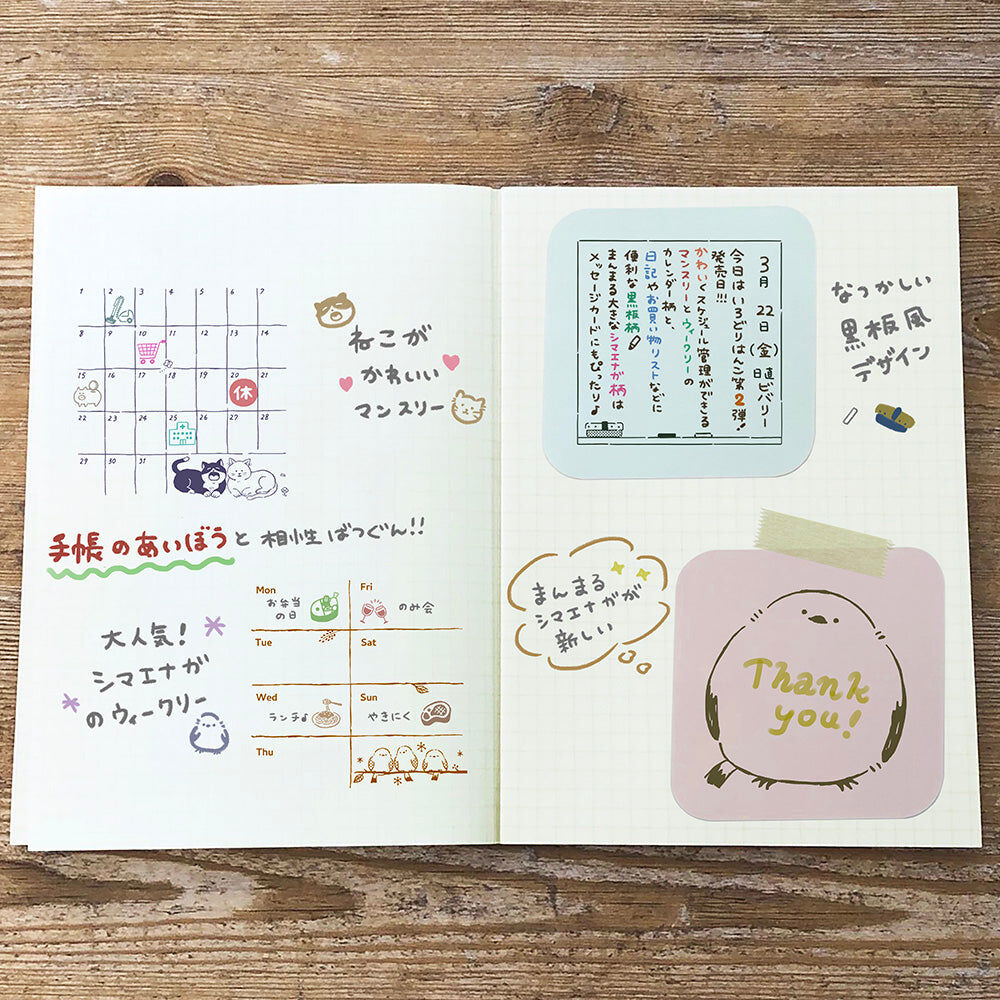 1 2 3 4 5 6 7
8 9 10 11 12 13 14
15 16 17 18 19 20 休 21
22 23 24 25 26 27 28
29 30 31
ねこが
かわいい
マンスリー
手帳のあいぼうと相性ばつぐん!!
大人気!
シマエナガ
のウィークリー
Mon
お弁当
の日
Fri
のみ会
Tue
Sat
Wed
ランチ♪
Sun
やきにく
Thu
3月22日(金)日直ビバリー
今日はいろどりはんこ第2弾!
発売日!!!
かわいくスケジュール管理ができる
マンスリーとウィークリーの
カレンダー柄と、
日記やお買い物リストなどに
便利な黒板柄
まんまる大きなシマエナガ柄は
メッセージカードにもぴったり♪
なつかしい
黒板風
デザイン
まんまる
シマエナガが
新しい
Thank
you!